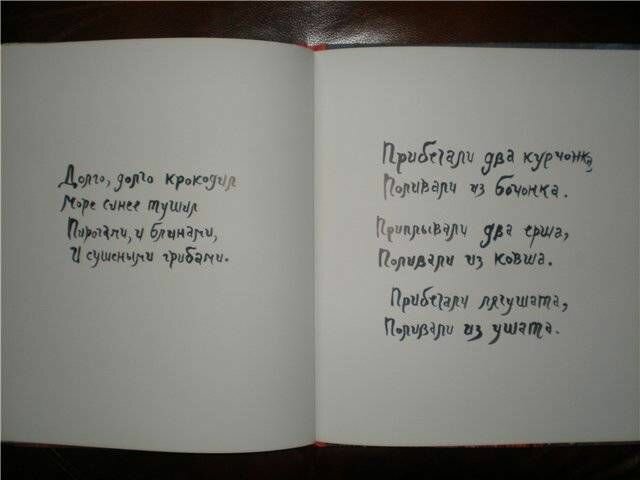 Долго, долго крокодил
Море синее тушил
Пирогами, и блинами,
И сушеными грибами.
Прибегали два курчонка,
Поливали из бочонка.
Приплывали два ерша,
Поливали из ковша.
Прибегали лягушата,
Поливали из ушата.